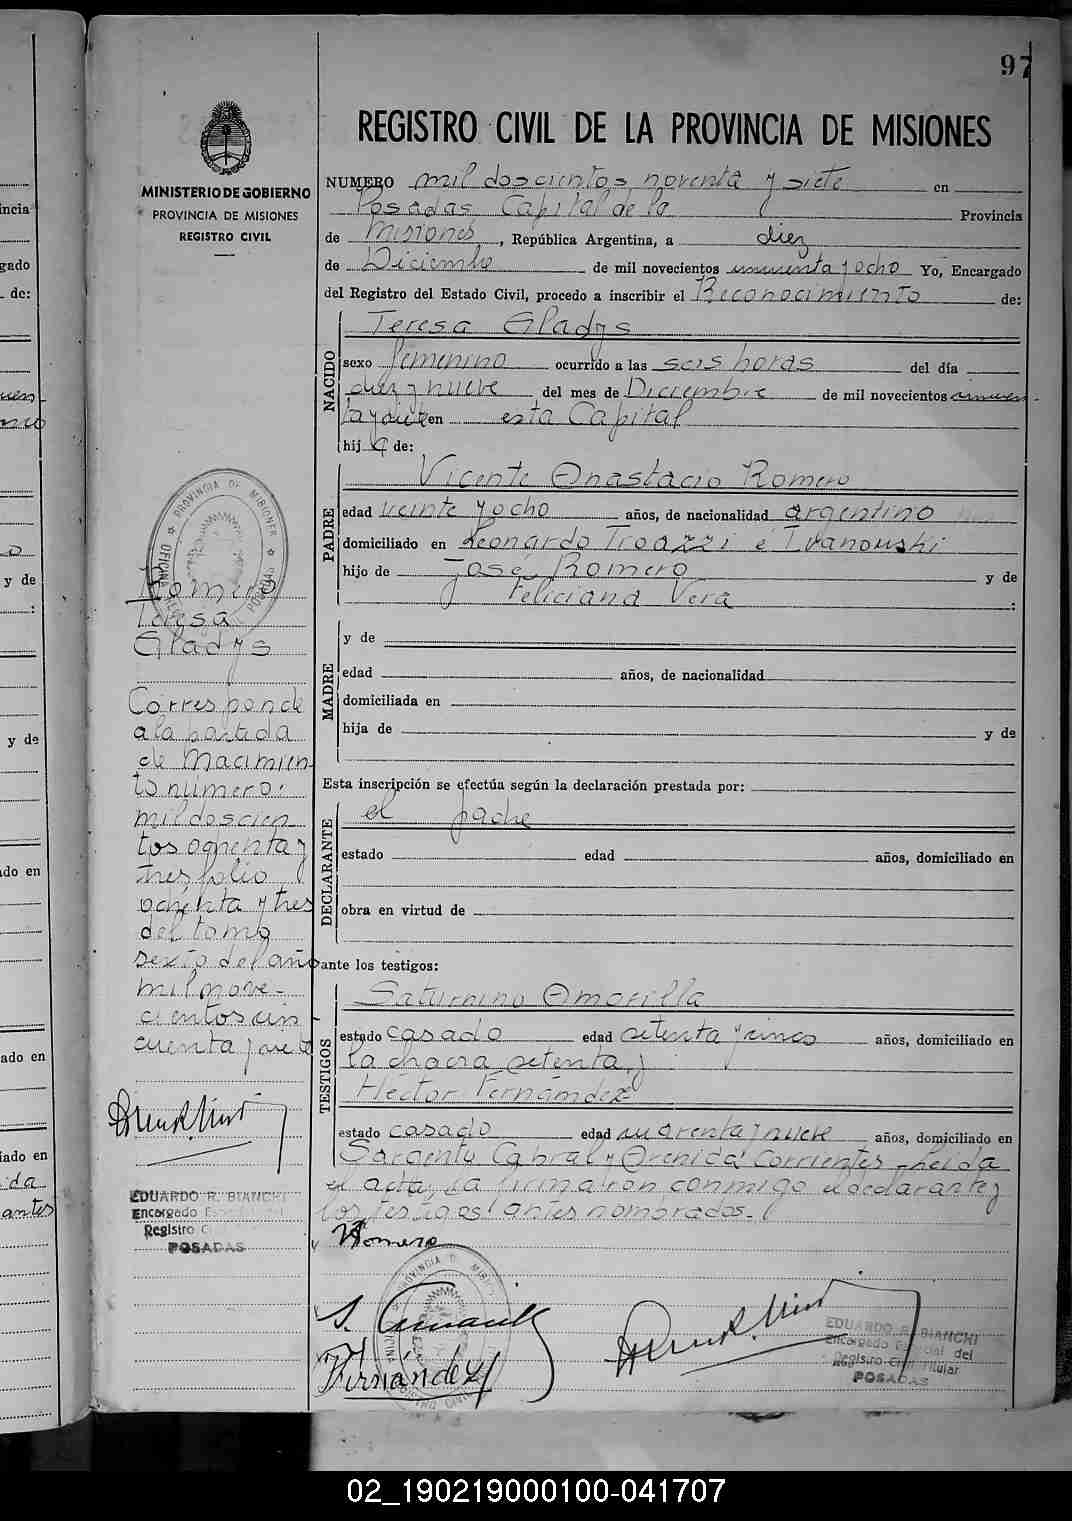 97
REGISTRO CIVIL DE LA PROVINCIA DE MISIONES
MINISTERIO DE GOBIERNO
PROVINCIA DE MISIONES
REGISTRO CIVIL
NUMERO mil doscientos noventa y siete en
Posadas Capital de la Provincia
de Misiones, República Argentina, a diez
de Diciembre de mil novecientos cincuenta y ocho Yo, Encargado
del Registro del Estado Civil, procedo a inscribir el Reconocimiento de:
NACIDO
Teresa Gladys
sexo femenino ocurrido a las seis horas del día
diez y nueve del mes de Diciembre de mil novecientos cincuen-
ta y siete en esta Capital
hija de:
PADRE
Vicente Anastacio Romero
edad veinte y ocho años, de nacionalidad argentino
domiciliado en Leonardo Troazzi e Ivanouski
hijo de José Romero y de
Feliciana Vera :
MADRE
y de
edad años, de nacionalidad
domiciliada en
hija de y de
Esta inscripción se efectúa según la declaración prestada por:
DECLARANTE
el padre
estado edad años, domiciliado en
obra en virtud de
ante los testigos:
TESTIGOS
Saturnino Amarilla
estado casado edad setenta y cinco años, domiciliado en
la chacra setenta y
Héctor Fernández
estado casado edad cuarenta y nueve años, domiciliado en
Sargento Cabral y Avenida Corrientes. Leida
el acta, la firmaron conmigo el declarante y
los testigos antes nombrados.-
VRomero
S. Amarilla
Fernández
EDUARDO R. BIANCHI
Encargado Especial del
Registro Civil Titular
POSADAS
PROVINCIA DE MISIONES
OFICINA
POSADAS
Romero
Teresa
Gladys
Corresponde
a la partida
de Nacimien
to número:
mil doscien
tos ochenta y
tres folio
ochenta y tres
del tomo
sexto del año
mil nove-
cientos cin-
cuenta y siete
EDUARDO R. BIANCHI
Encargado
Registro
POSADAS
02_190219000100-041707